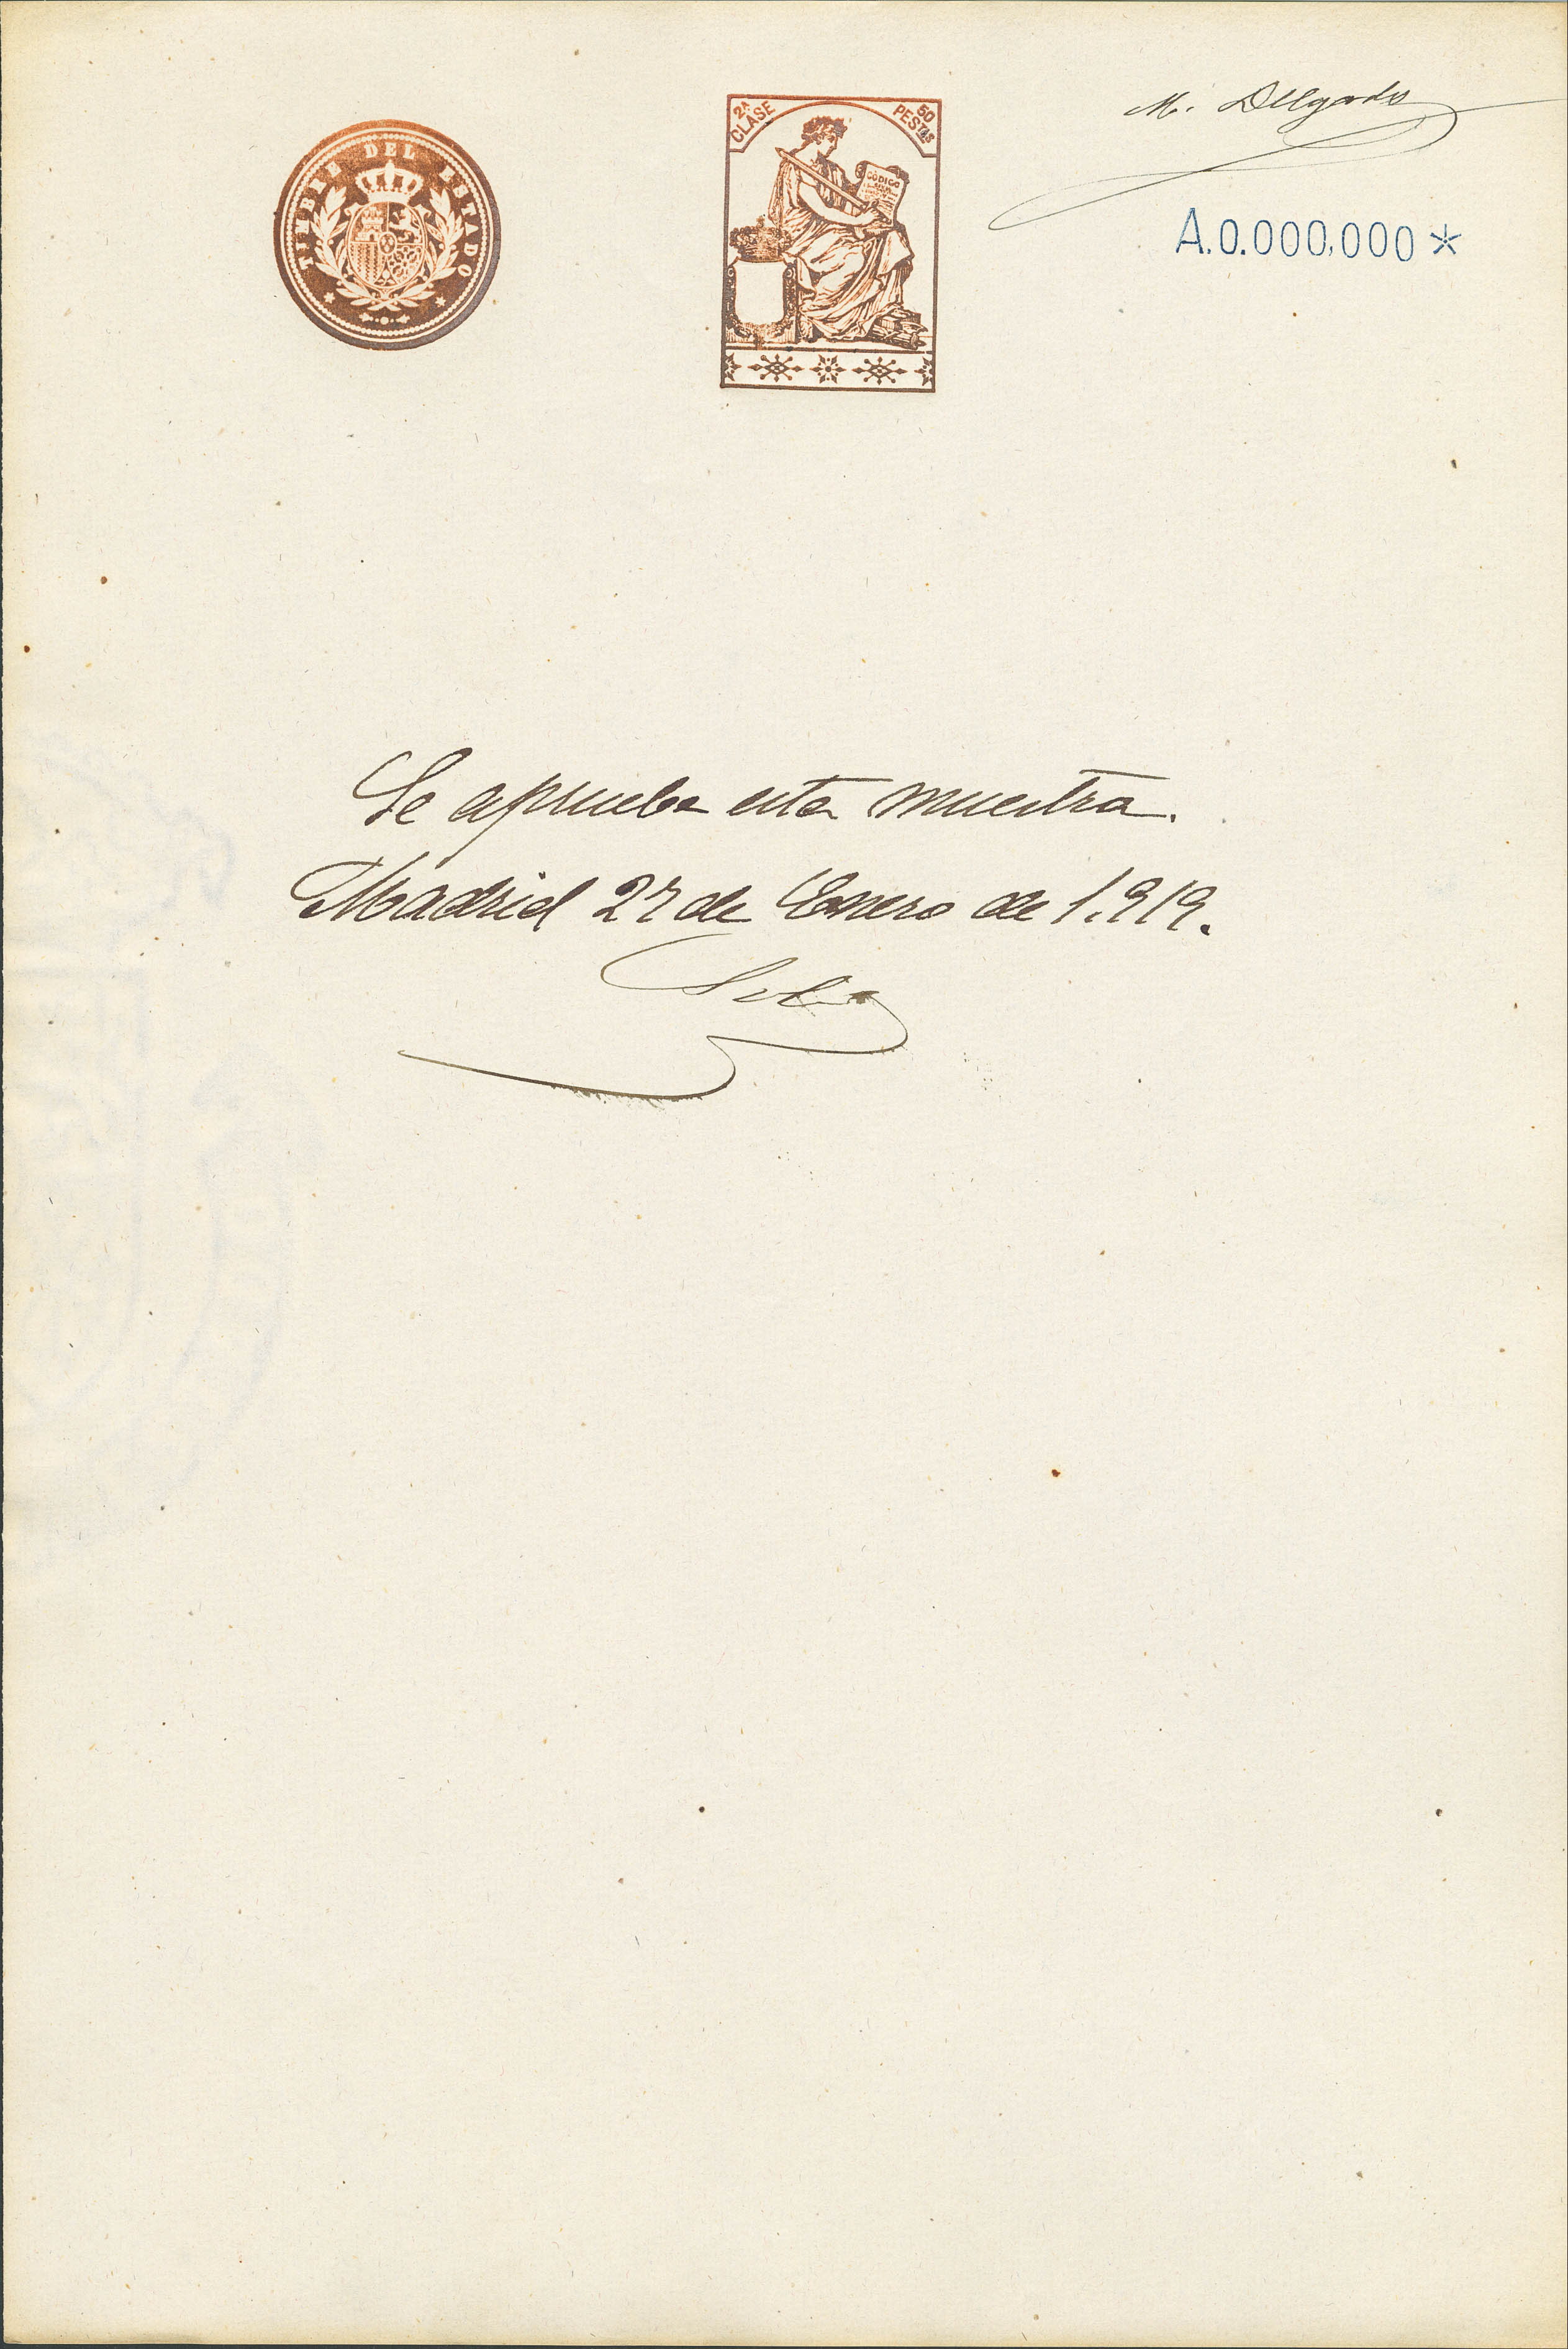 TIMBRE DEL ESTADO
2ª CLASE
50 PESTAS
CÓDIGO
M. Delgado
A.0.000,000*
Se aprueba esta muestra.
Madrid 27 de Enero de 1.919.